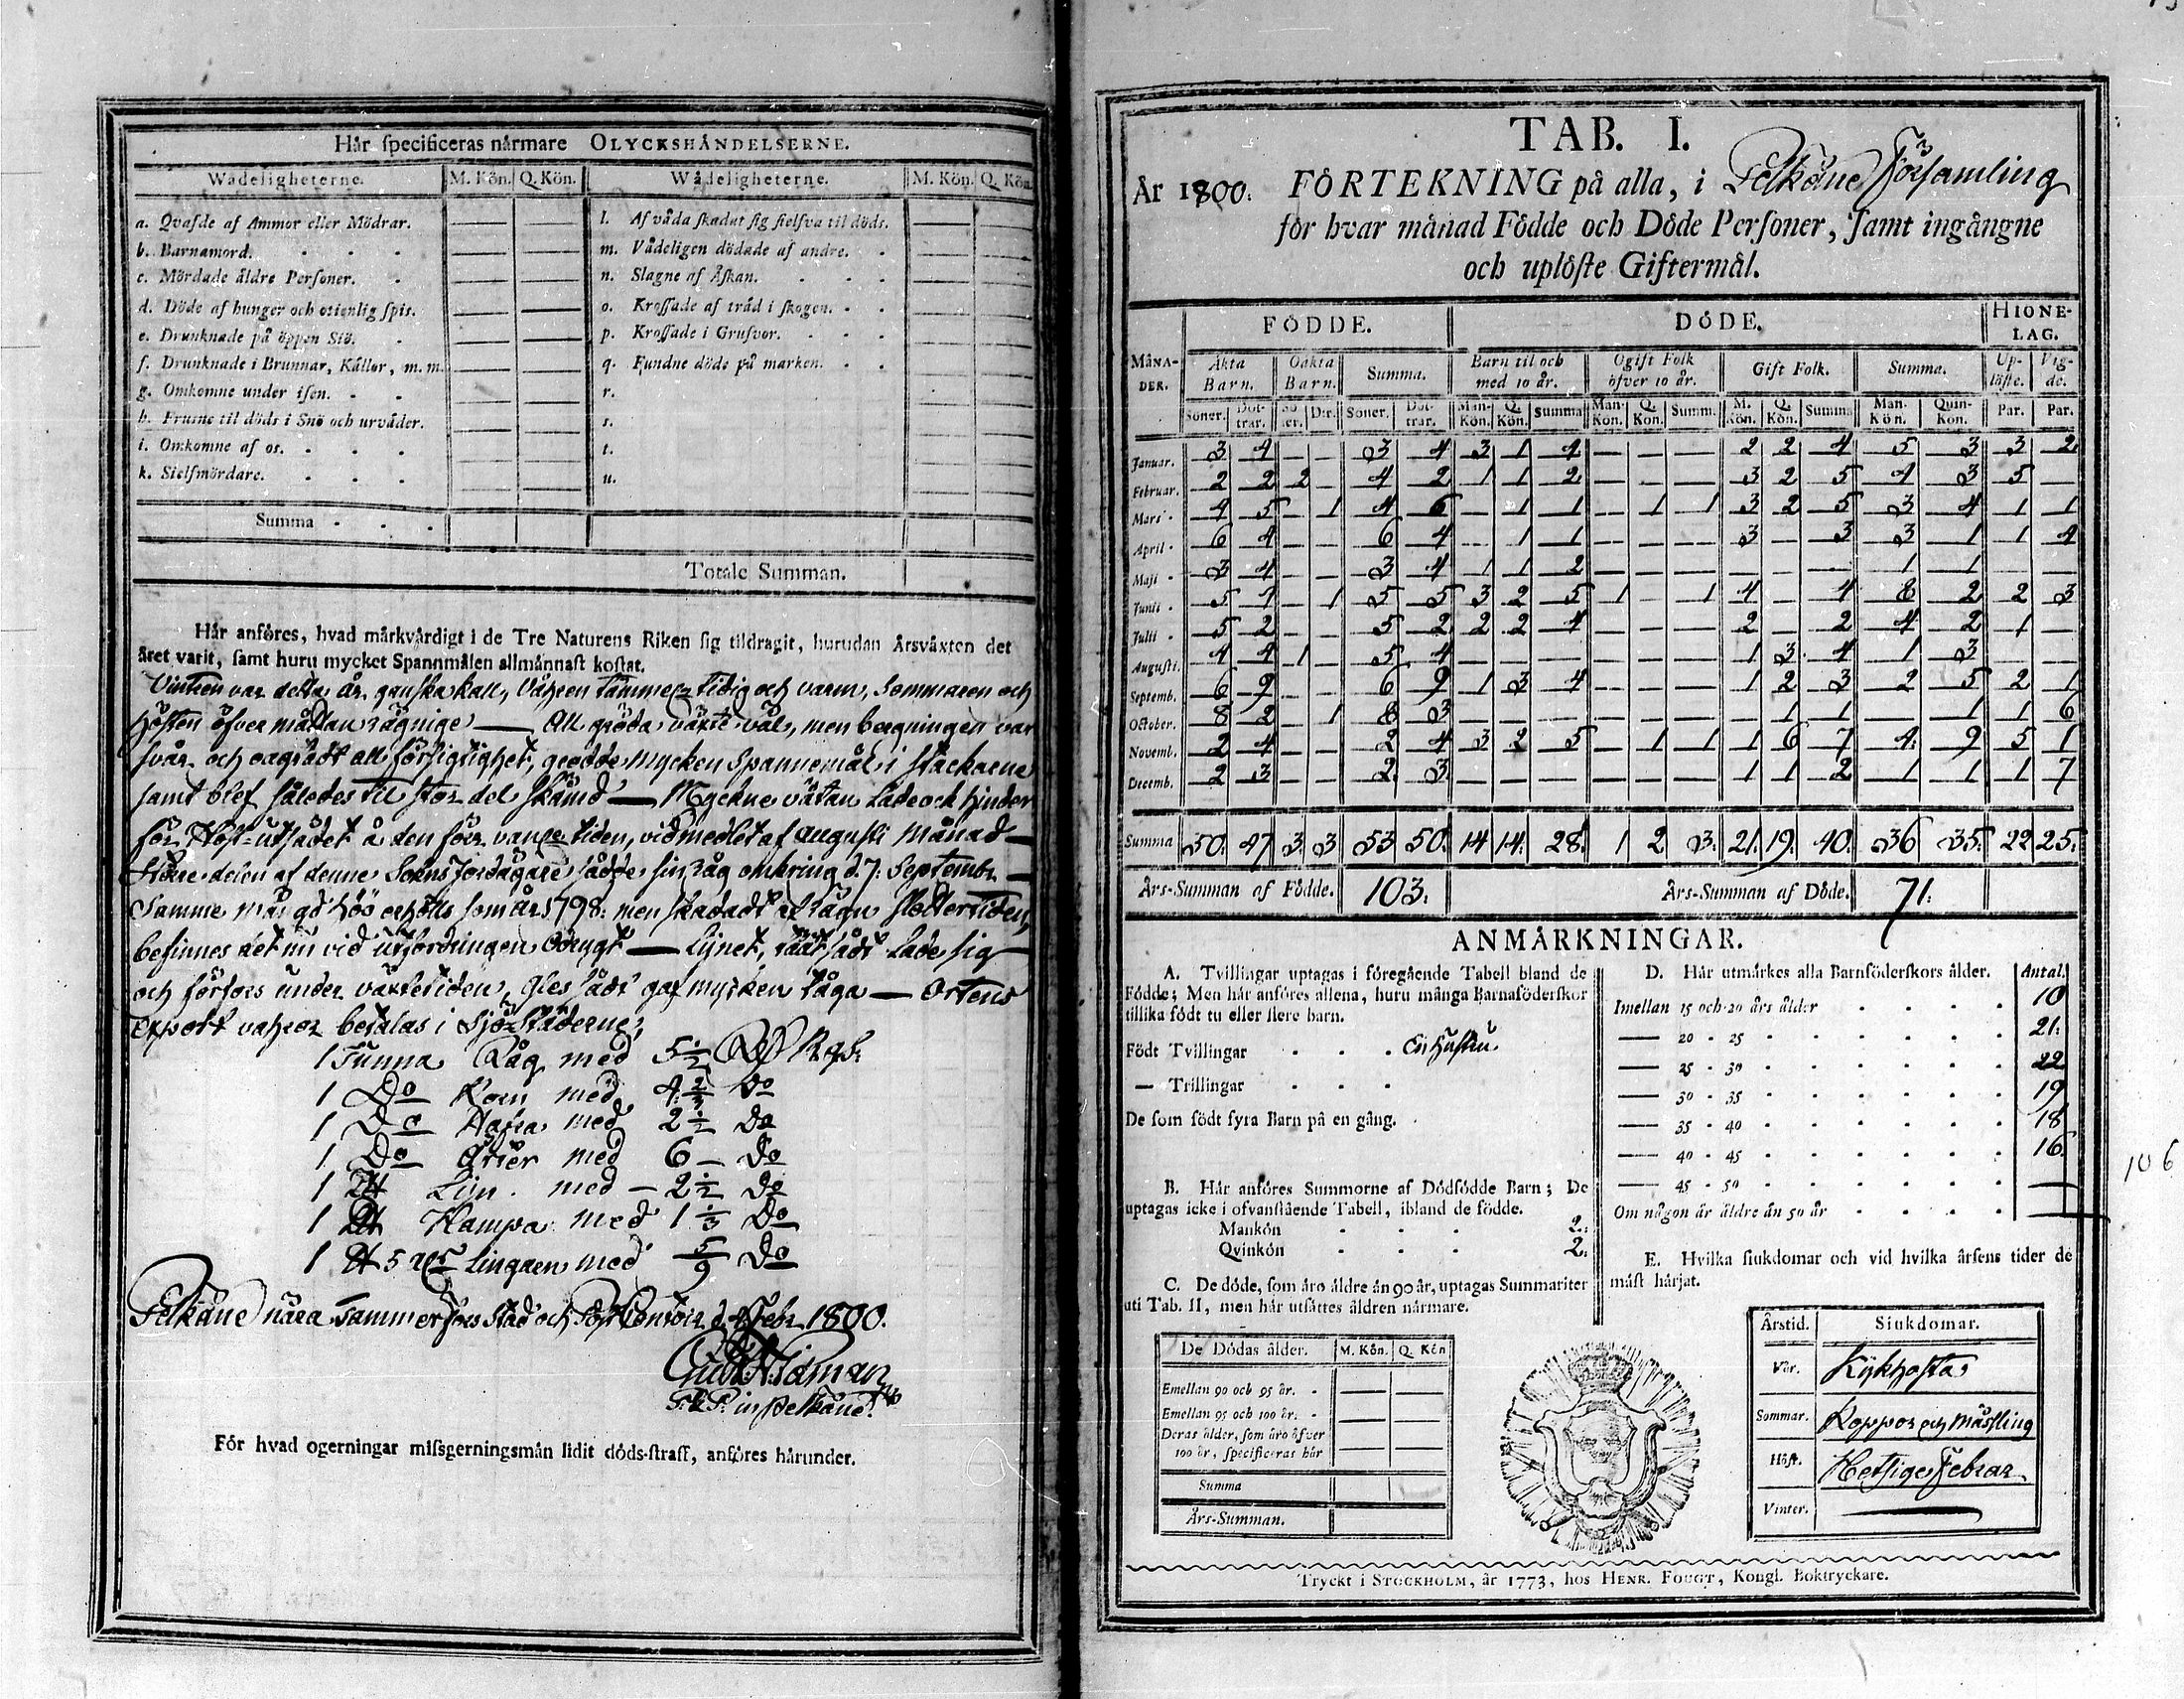 Här specificeras närmare OLYCKSHÄNDELSERNE.
Wådeligheterne. M. Kön. Q. Kön. Wådeligheterne. M. Kön. Q. Kön.
a. Qvafde af Ammor eller Mödrar. — — l. Af våda skadat sig sielfva til döds. — —
b. Barnamord. — — m. Vådeligen dödade af andre. — —
c. Mördade äldre Personer. — — n. Slagne af Åskan. — —
d. Döde af hunger och otienlig spis. — — o. Krossade af träd i skogen. — —
e. Drunknade på öppen Siö. — — p. Krossade i Grufvor. — —
f. Drunknade i Brunnar, Källor, m. m. — — q. Fundne döde på marken. — —
g. Omkomne under isen. — — r. — —
h. Frusne til döds i Snö och urväder. — — s. — —
i. Omkomne af os. — — t. — —
k. Sielfmördare. — — u. — —
Summa
Totale Summan.
Här anföres, hvad märkvärdigt i de Tre Naturens Riken sig tildragit, hurudan Årsväxten det
året varit, samt huru mycket Spannmålen allmännast kostat.
Vintren var detta år ganska kall, Våhren tidig och varm, Sommaren och
Hösten öfver måttan rägnige — All gröda växte väl, men bergningen var
svår och oagtadt all försigtighet, grodde mycken Spannemål i skäckarne
samt blef således til stor del skämd — Myckne vätan lade ock hinder
för Höst-utsädet å den förr tiden, vid medlet af Augusti Månad —
Större delen af denne Sokns Jordägare sådde sin Råg omkring d. 7. Septembr —
Samme mängd Hö erhölts som år 1798. men skadadt af rägn slåttertiden,
befinnes det nu vid utfodringen Odrygt — Lijnet, tätt sådt lade sig
och förfors under växtetiden, gles sådt gaf mycken tåga — Ortens
Export vahror betalas i Sjö-Städerne,
1 Tunna Råg med 5 1/2 Rd Rgs.
1 Do Korn med 4 2/3 Do
1 Do Hafra med 2 1/2 Do
1 Do Ärter med 6 — Do
1 Lijn med — 2 1/2 Do
1 Hampa med 1 1/3 Do
1 5 Lingarn med 5/9 Do
Pelkäne nära Tammerfors Stad och Post Contoir d. 4 Febr. 1800.
P. & P. in Pelkäne
För hvad ogerningar missgerningsmän lidit döds-straff, anföres härunder.
TAB. I.
År 1800. FÖRTEKNING på alla, i Pelkäne Församling
för hvar månad Födde och Döde Personer, samt ingångne
och uplöste Giftermål.
MÅNADER. FÖDDE. DÖDE. HIONELAG.
Äkta Barn. Oäkta Barn. Summa. Barn til och med 10 år. Ogift Folk öfver 10 år. Gift Folk. Summa. Uplöste. Vigde.
Söner. Döttrar. Söner. D:r. Söner. Döttrar. Man-Kön. Q. Kön. Summa Man-Kön. Q. Kön. Summ. M. Kön. Q. Kön. Summa Man-Kön. Quin-Kön. Par. Par.
Januar. 3 4 — — 3 4 3 1 4 — — — 2 2 4 5 3 3 2
Februar. 2 2 2 — 4 2 1 1 2 — — — 3 2 5 4 3 5 —
Mars 4 5 — 1 4 6 — 1 1 — 1 1 3 2 5 3 4 1 1
April 6 4 — — 6 4 — 1 1 — — — 3 — 3 3 1 1 4
Maji 3 4 — — 3 4 1 1 2 — — — — — — 1 1 — —
Junii 5 4 — 1 5 5 3 2 5 1 — 1 4 — 4 8 2 2 3
Julii 5 2 — — 5 2 2 2 4 — — — 2 — 2 4 2 1 —
Augusti. 4 4 1 — 5 4 — — — — — — 1 3 4 1 3 — —
Septemb. 6 9 — — 6 9 1 3 4 — — — 1 2 3 2 5 2 1
October. 8 2 — 1 8 3 — — — — — — — 1 1 — 1 1 6
Novemb. 2 4 — — 2 4 3 2 5 — 1 1 1 6 7 4 9 5 1
Decemb. 2 3 — — 2 3 — — — — — — 1 1 2 1 1 1 7
Summa 50. 47 3 3 53 50. 14 14. 28. 1 2 3. 21. 19. 40. 36 35. 22 25.
Års-Summan af Födde. 103. Års-Summan af Döde. 71.
ANMÄRKNINGAR.
A. Tvillingar uptagas i föregående Tabell bland de
Födde; Men här anföres allena, huru många Barnaföderskor
tillika födt tu eller flere barn.
Födt Tvillingar . . . En hustru.
— Trillingar . . .
De som födt fyra Barn på en gång. .
B. Här anföres Summorne af Dödfödde Barn; De
uptagas icke i ofvanstående Tabell, ibland de födde.
Mankön . . . 2.
Qvinkön . . . 2.
C. De döde, som äro äldre än 90 år, uptagas Summariter
uti Tab. II, men här utsättes åldren närmare.
De Dödas ålder. M. Kön. Q. Kön
Emellan 90 och 95 år. — —
Emellan 95 och 100 år. — —
Deras ålder, som äro öfver
100 år, specificeras här — —
Summa
Års-Summan.
D. Här utmärkes alla Barnföderskors ålder. Antal.
Imellan 15 och 20 års ålder 10
— 20 - 25 21.
— 25 - 30 22
— 30 - 35 19
— 35 - 40 18
— 40 - 45 16.
— 45 - 50 —
Om någon är äldre än 50 år —
106
E. Hvilka siukdomar och vid hvilka årsens tider de
mäst härjat.
Årstid. Siukdomar.
Vår. Kikhosta
Sommar. Koppor och Mässling
Höst. Hetsige Febrar
Vinter. —
Tryckt i STOCKHOLM, år 1773, hos HENR. FOUGT, Kongl. Boktryckare.